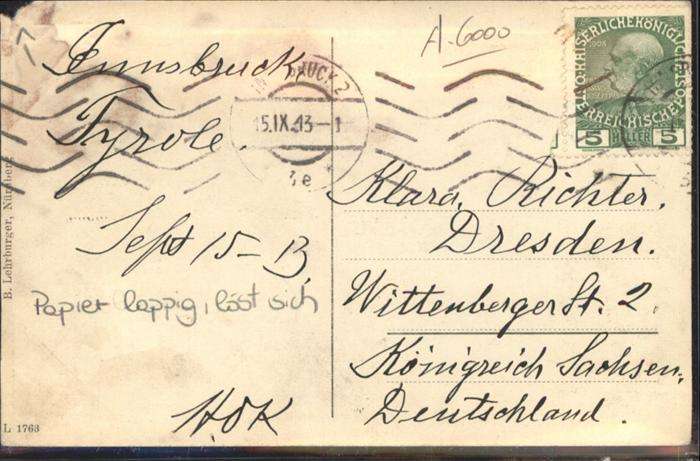 A-6000
Innsbruck
Tyrole.
Sept 15-13,
Papier lappig, löst sich
HOK
KAISERLICHEKÖNIGLICHE
ÖSTERREICHISCHE POST
1908
5 HELLER 5
UCK 2
15.IX.13-1
Klara Richter.
Dresden.
Wittenberger St. 2.
Königreich Sachsen.
Deutschland.
B. Lehrburger, Nürnberg
L 1763